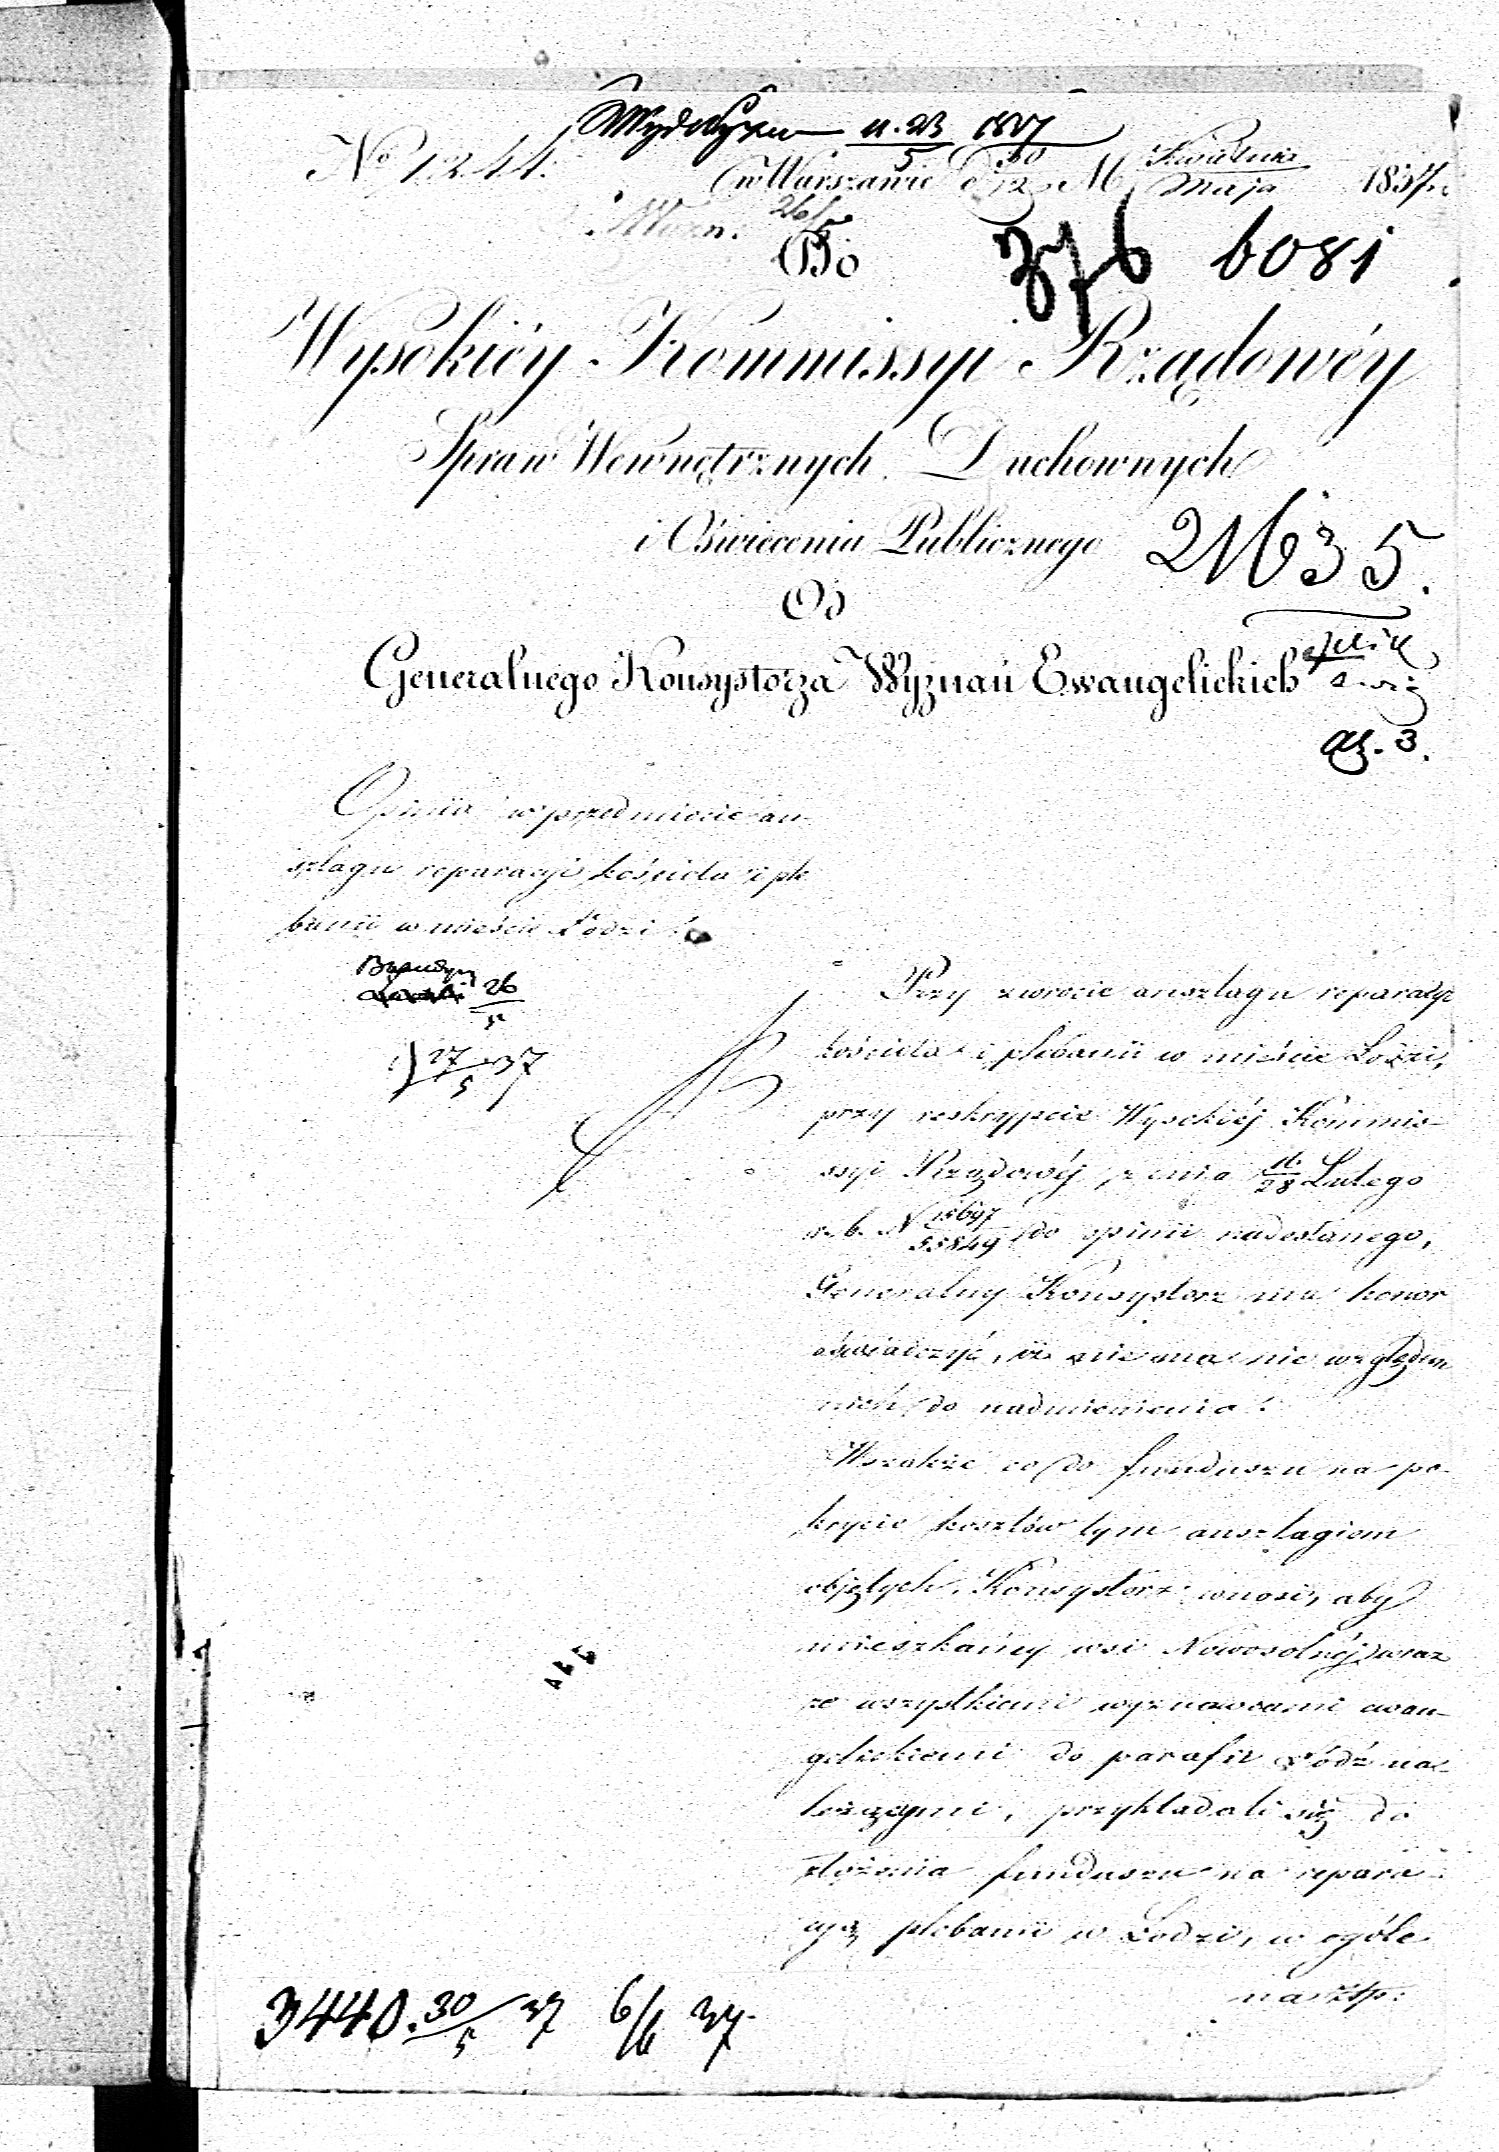 N° 1244.
w Warszawie d 30/12 M Kwietnia/Maja 1837 r.
26/5
Do
376 6081
Wysokiéy Kommissyi Rządowéy
Spraw Wewnętrznych Duchownych
i Oświecenia Publicznego
21635.
Od
Generalnego Konsystorza Wyznań Ewangelickich
Opinia w przedmiocie an-
szlagu reparacyi kościoła i ple
banii w mieście Łodzi.
26/5
27/5 37
Przy zwrocie anszlagu reparacyi
kościoła i plebanii w mieście Łodzi,
przy reskrypcie Wysokiéj Kommis-
syi Rządowéj z dnia 16/28 Lutego
r. b. N 15697/55849 do opinii nadesłanego,
Generalny Konsystorz ma honor
oświadczyć, iż nie ma nic względem
nich do nadmienienia.
Wszakże co do funduszu na po-
krycie kosztów tym anszlagiem
objętych, Konsystorz wnosi, aby
mieszkańcy wsi Nowosolnéj wraz
ze wszystkiemi wyznawcami ewan-
gelickiemi do parafii Łódź na-
leżącymi, przykładali się do
złożenia funduszu na repara-
cyą plebanii w Łodzi, w ogóle
na złp:
3440. 30/5 37 6/6 37.